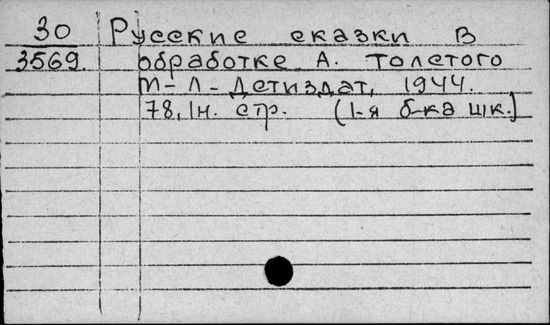 30 Русские сказки в
3569. обработке А. Толстого
М-Л-Детиздат, 1944.
78, 1н. стр. (1-я б-ка шк.)